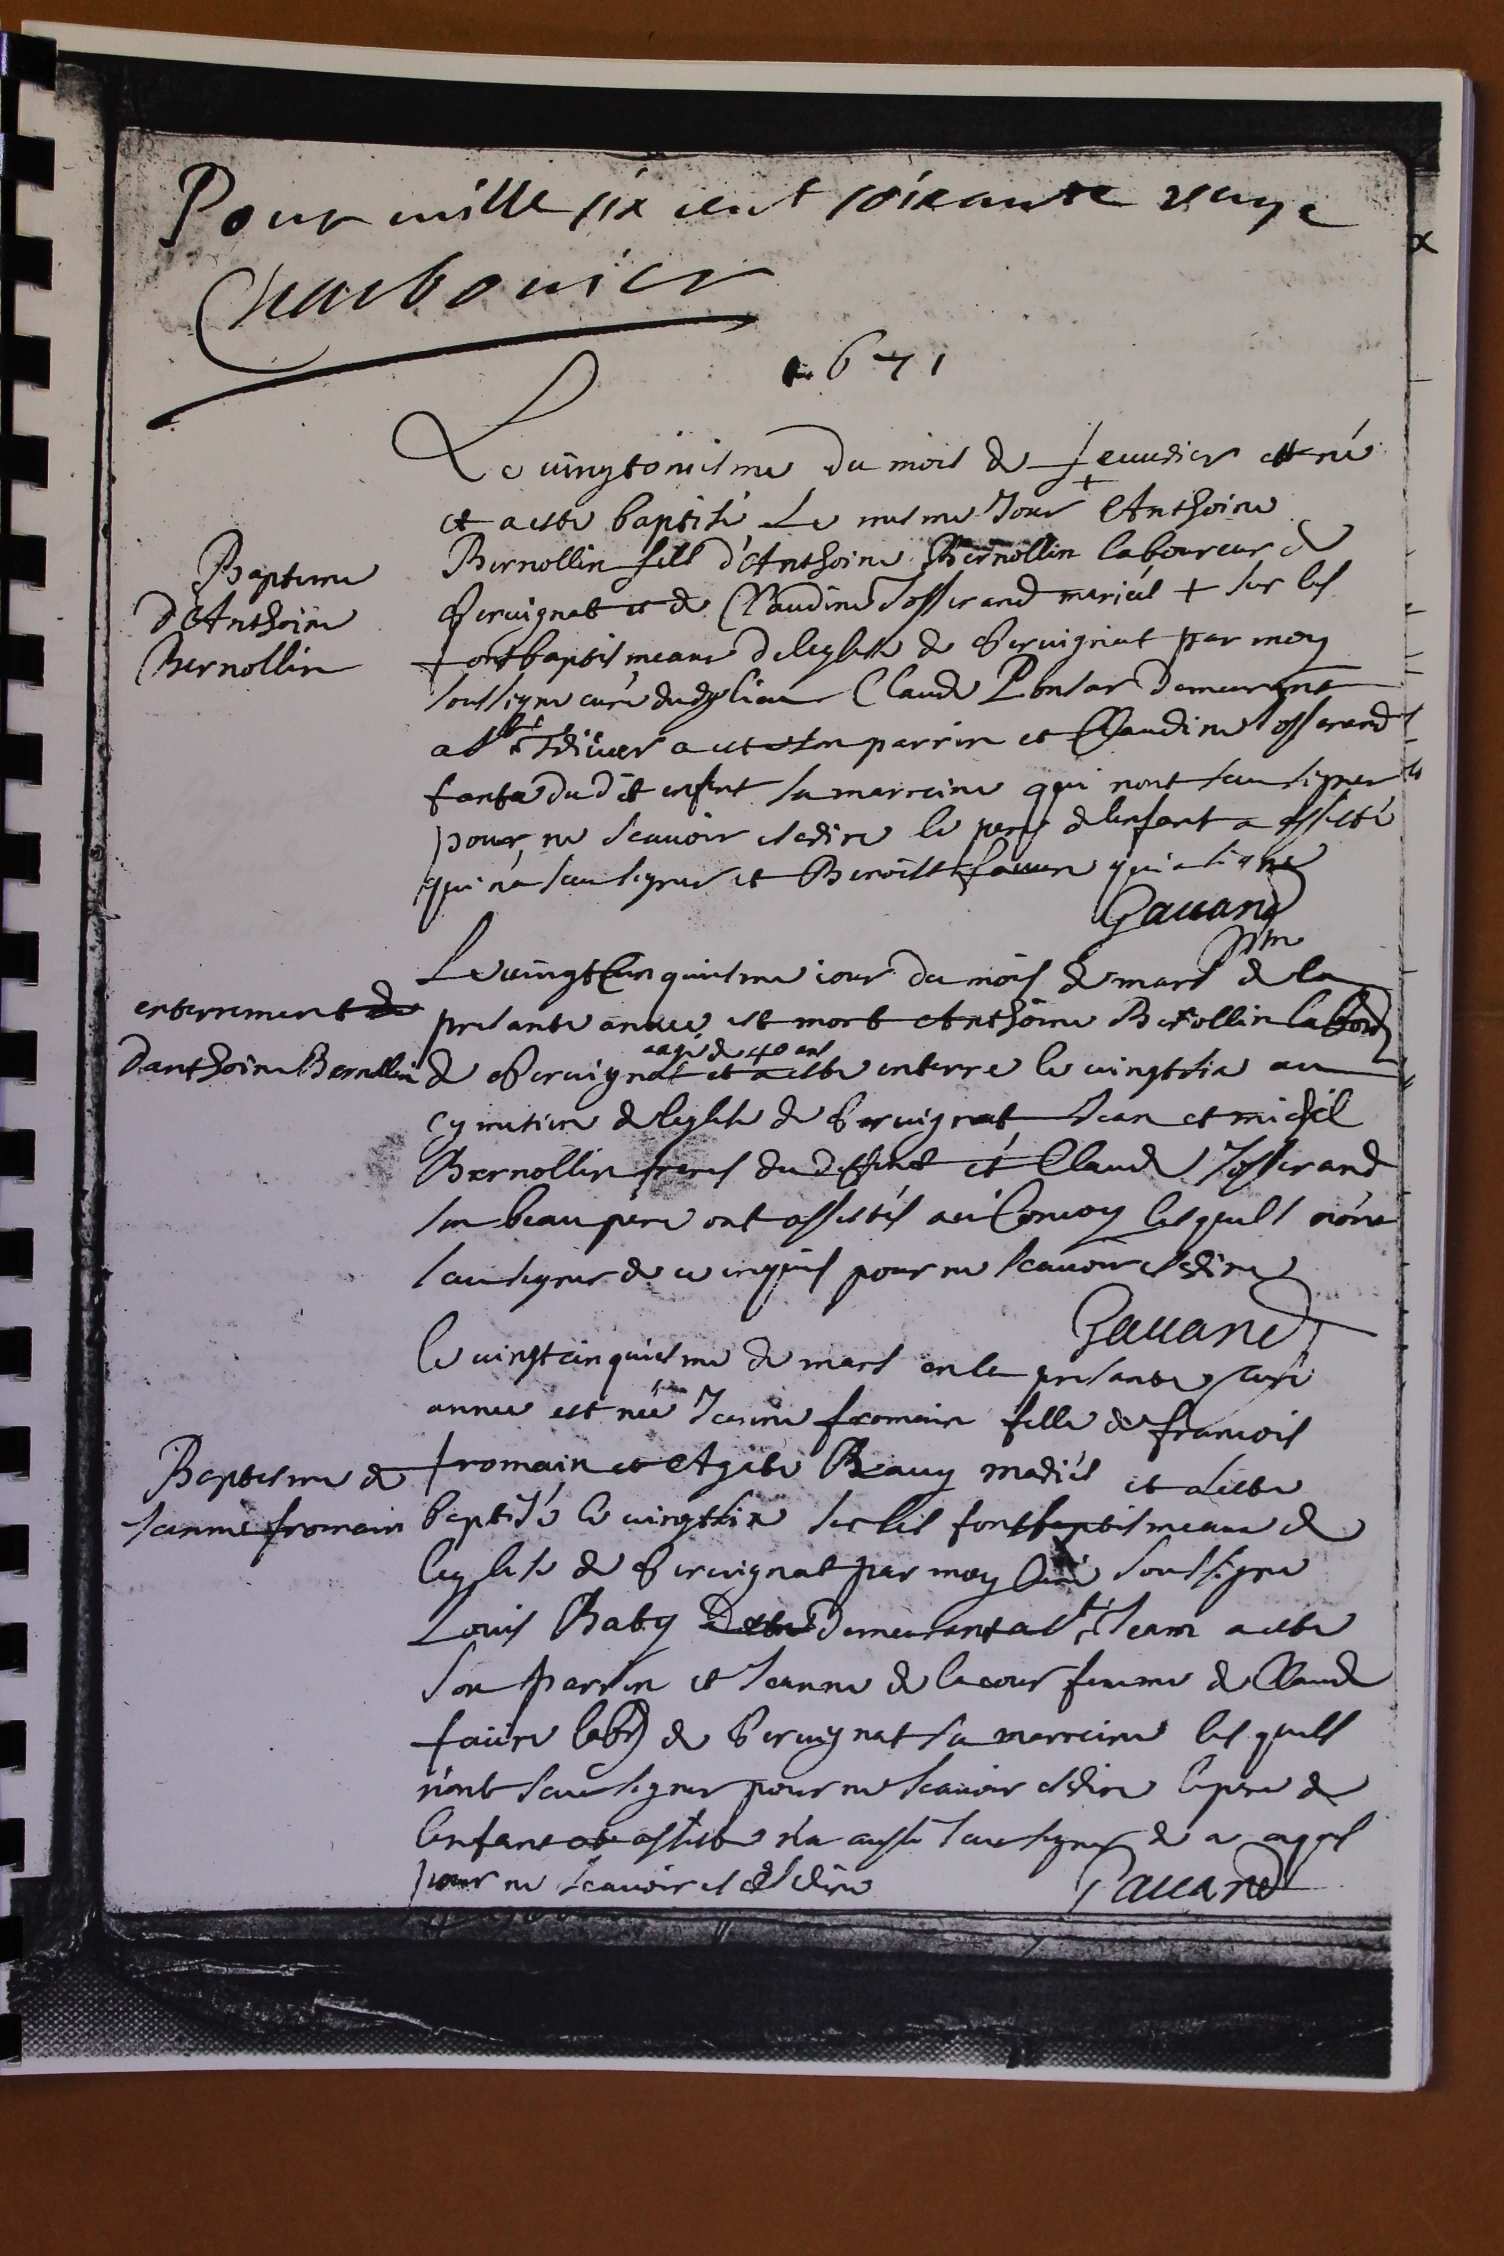 Pour mille six cent soixante unze
Charbonier
1671
Le vingtoniesme du mois de feuurier est né
et a esté baptisé le mesme Jour Anthoine
Bernollin fils d'Anthoine Bernollin laboureur de
Peruignat et de Claudine Josserand mariés + sur les
fontbaptismeaux de leglise de Peruignat par moy
soussigne curé dud Claude Ponsar demeurant
a St a esté son parrin et Claudine Josserand
tante du dit enfant sa marreine qui nont sceu signer
pour ne scauoir et dire le pere de lenfant a assisté
qui na sceu signer et Benoist fauure qui a signe
Gauand
Baptesme
d'Anthoine
Bernollin
Le vingt Cinquiesme iour du mois de mars de la
presante année est mort Anthoine Bernollin labour
aagé de 40 ans
de Peruignat et a esté enterre le vingtsix au
cymitiere de leglise de Peruignat Jean et michel
Bernollin freres du deffunt et Claude Josserand
son beau pere ont assistés au Conuoy lesquels nont
sceu signer de ce enquis pour ne scauoir et dire
Gauand
curé
enterrement de
danthoine Bernollin
le vingtcinquiesme de mars en la presante
annee est née Jeanne fromain fille de francois
fromain et Agate Rauy mariés et a esté
baptisé le vingtsix sur les fontbaptismeaux de
leglise de Peruignat par moy Curé soussigne
Louis Baby demeurant a St Jean a esté
son parrin et Jeanne de lacour femme de Claude
faiure labr de Peruignat sa marreine lesquels
n'ont sceu signer pour ne scauoir et dire le pere de
lenfant assisté n'a aussi sceu signer de ce enquis
pour ne scauoir et dire
Gauand
Baptesme de
Jeanne fromain